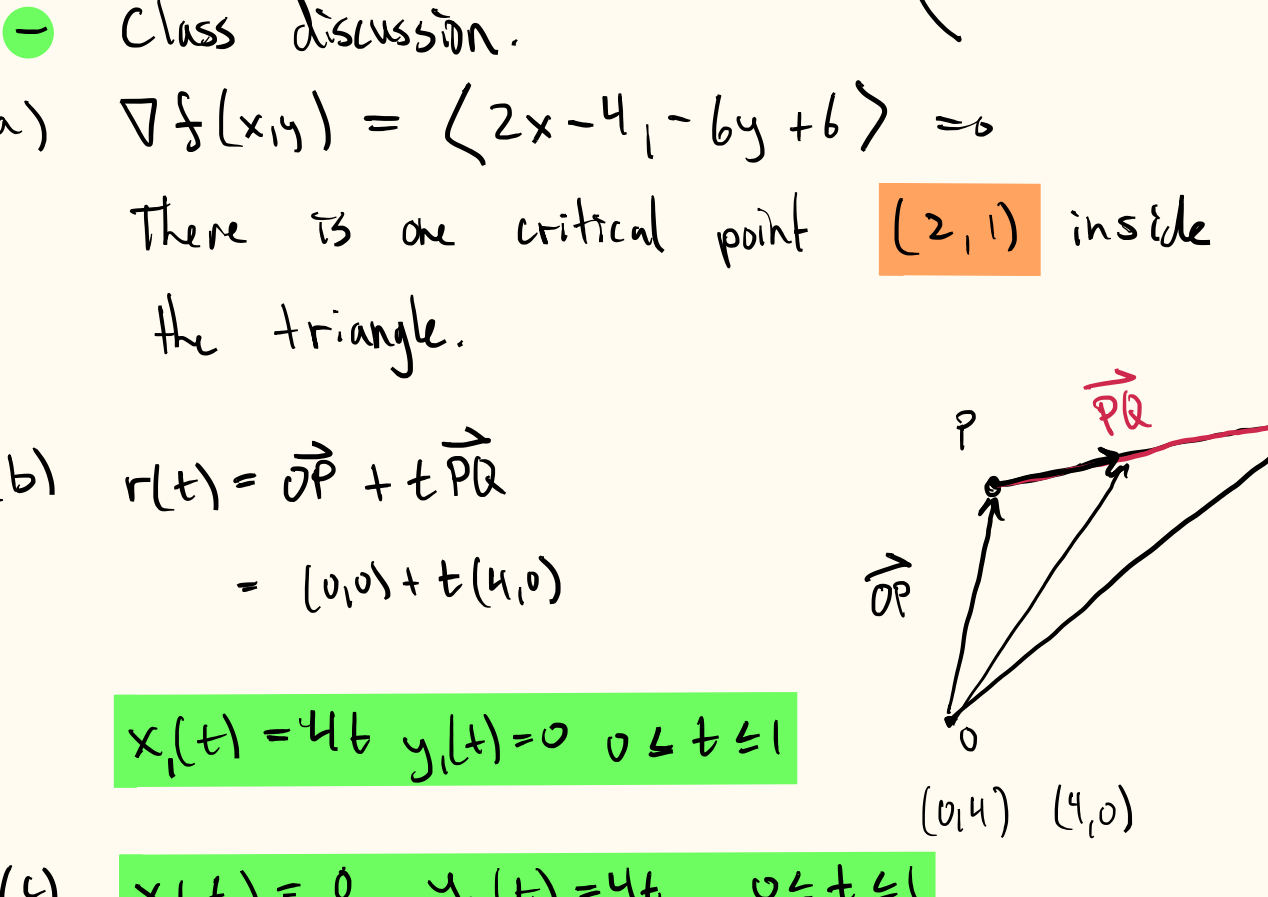 − Class discussion.
a) ∇f(x,y) = ⟨2x−4, −6y+6⟩ =0
There is one critical point (2,1) inside
the triangle.
P
→PQ
(b) r(t) = →OP + t →PQ
= (0,0) + t(4,0)
→OP
x₁(t) = 4t y₁(t)=0 0 ≤ t ≤ 1
O
(0,4) (4,0)
(c) x (t) = 0 y (t) = 4t 0 ≤ t ≤ 1